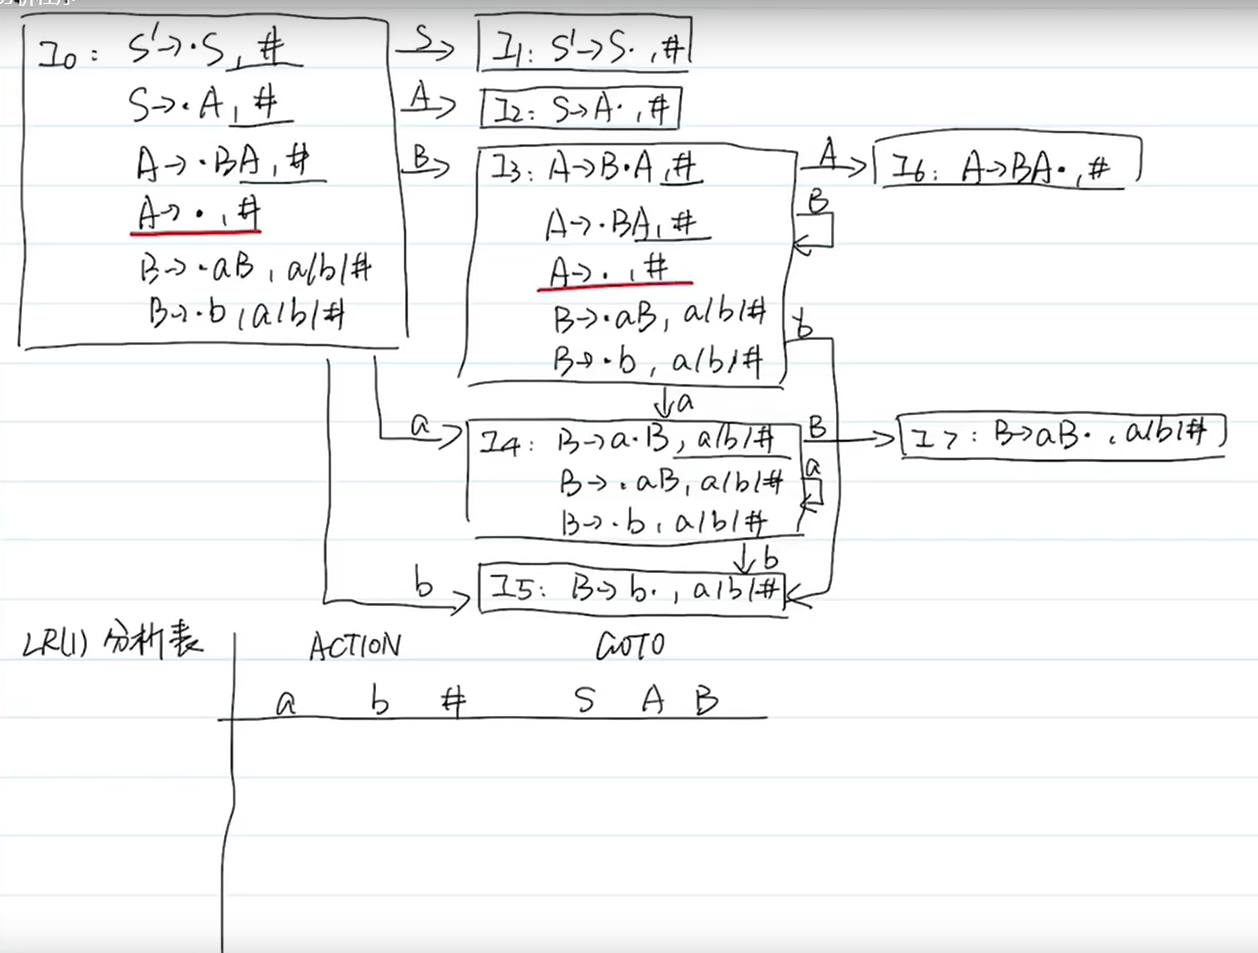 I0: S'→·S, #
S→·A, #
A→·BA, #
A→·, #
B→·aB, a/b/#
B→·b, a/b/#
S
I1: S'→S·, #
A
I2: S→A·, #
B
I3: A→B·A, #
A→·BA, #
A→·, #
B→·aB, a/b/#
B→·b, a/b/#
A
I6: A→BA·, #
B
b
a
a
I4: B→a·B, a/b/#
B→·aB, a/b/#
B→·b, a/b/#
B
I7: B→aB·, a/b/#
a
b
b
I5: B→b·, a/b/#
LR(1) 分析表 ACTION GOTO
a b # S A B